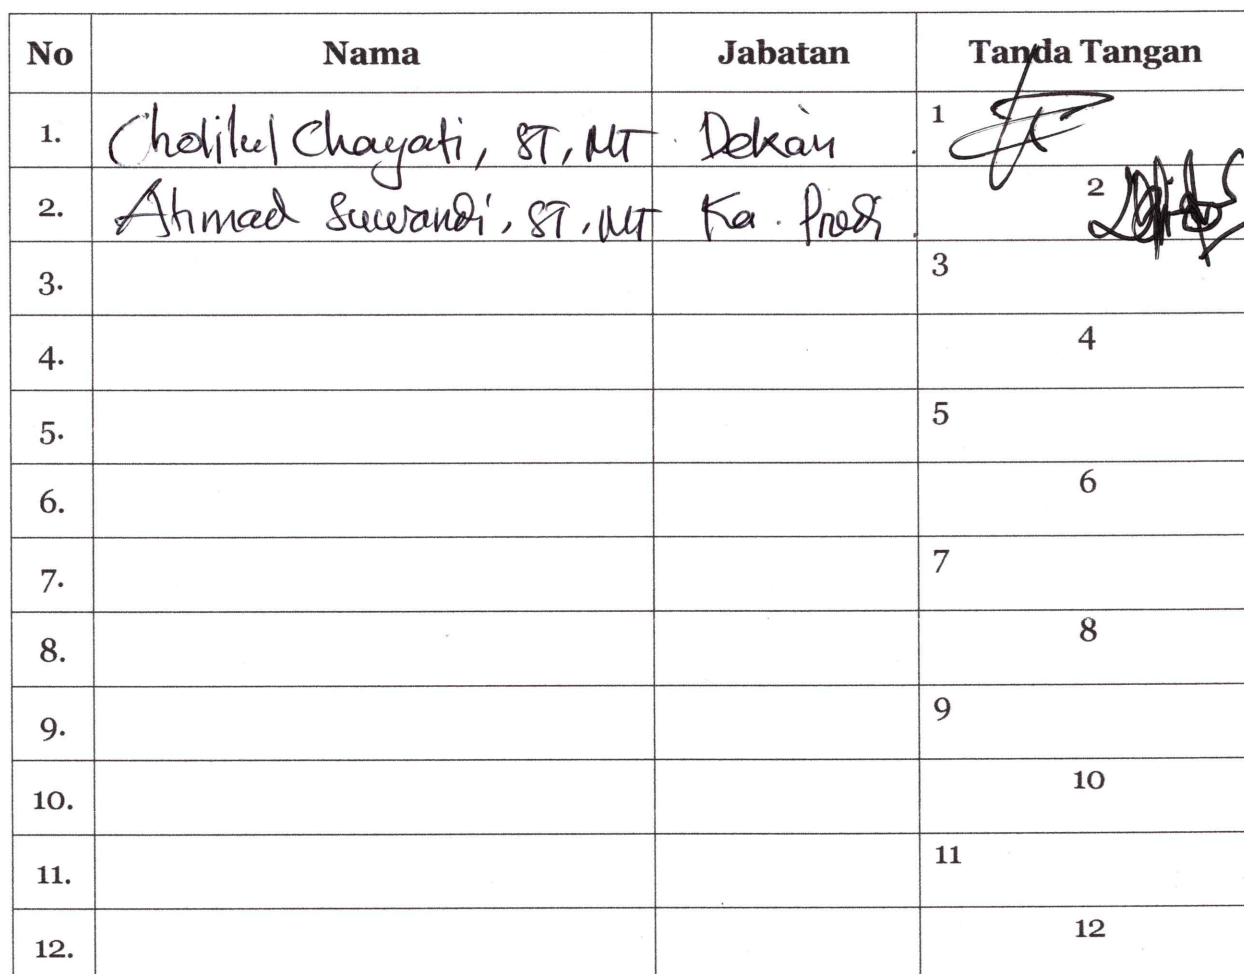 No Nama Jabatan Tanda Tangan
1. Cholilul Chayati, ST, MT. Dekan. 1
2. Ahmad Suwandi, ST, MT Ka. Prodi. 2
3. 3
4. 4
5. 5
6. 6
7. 7
8. 8
9. 9
10. 10
11. 11
12. 12